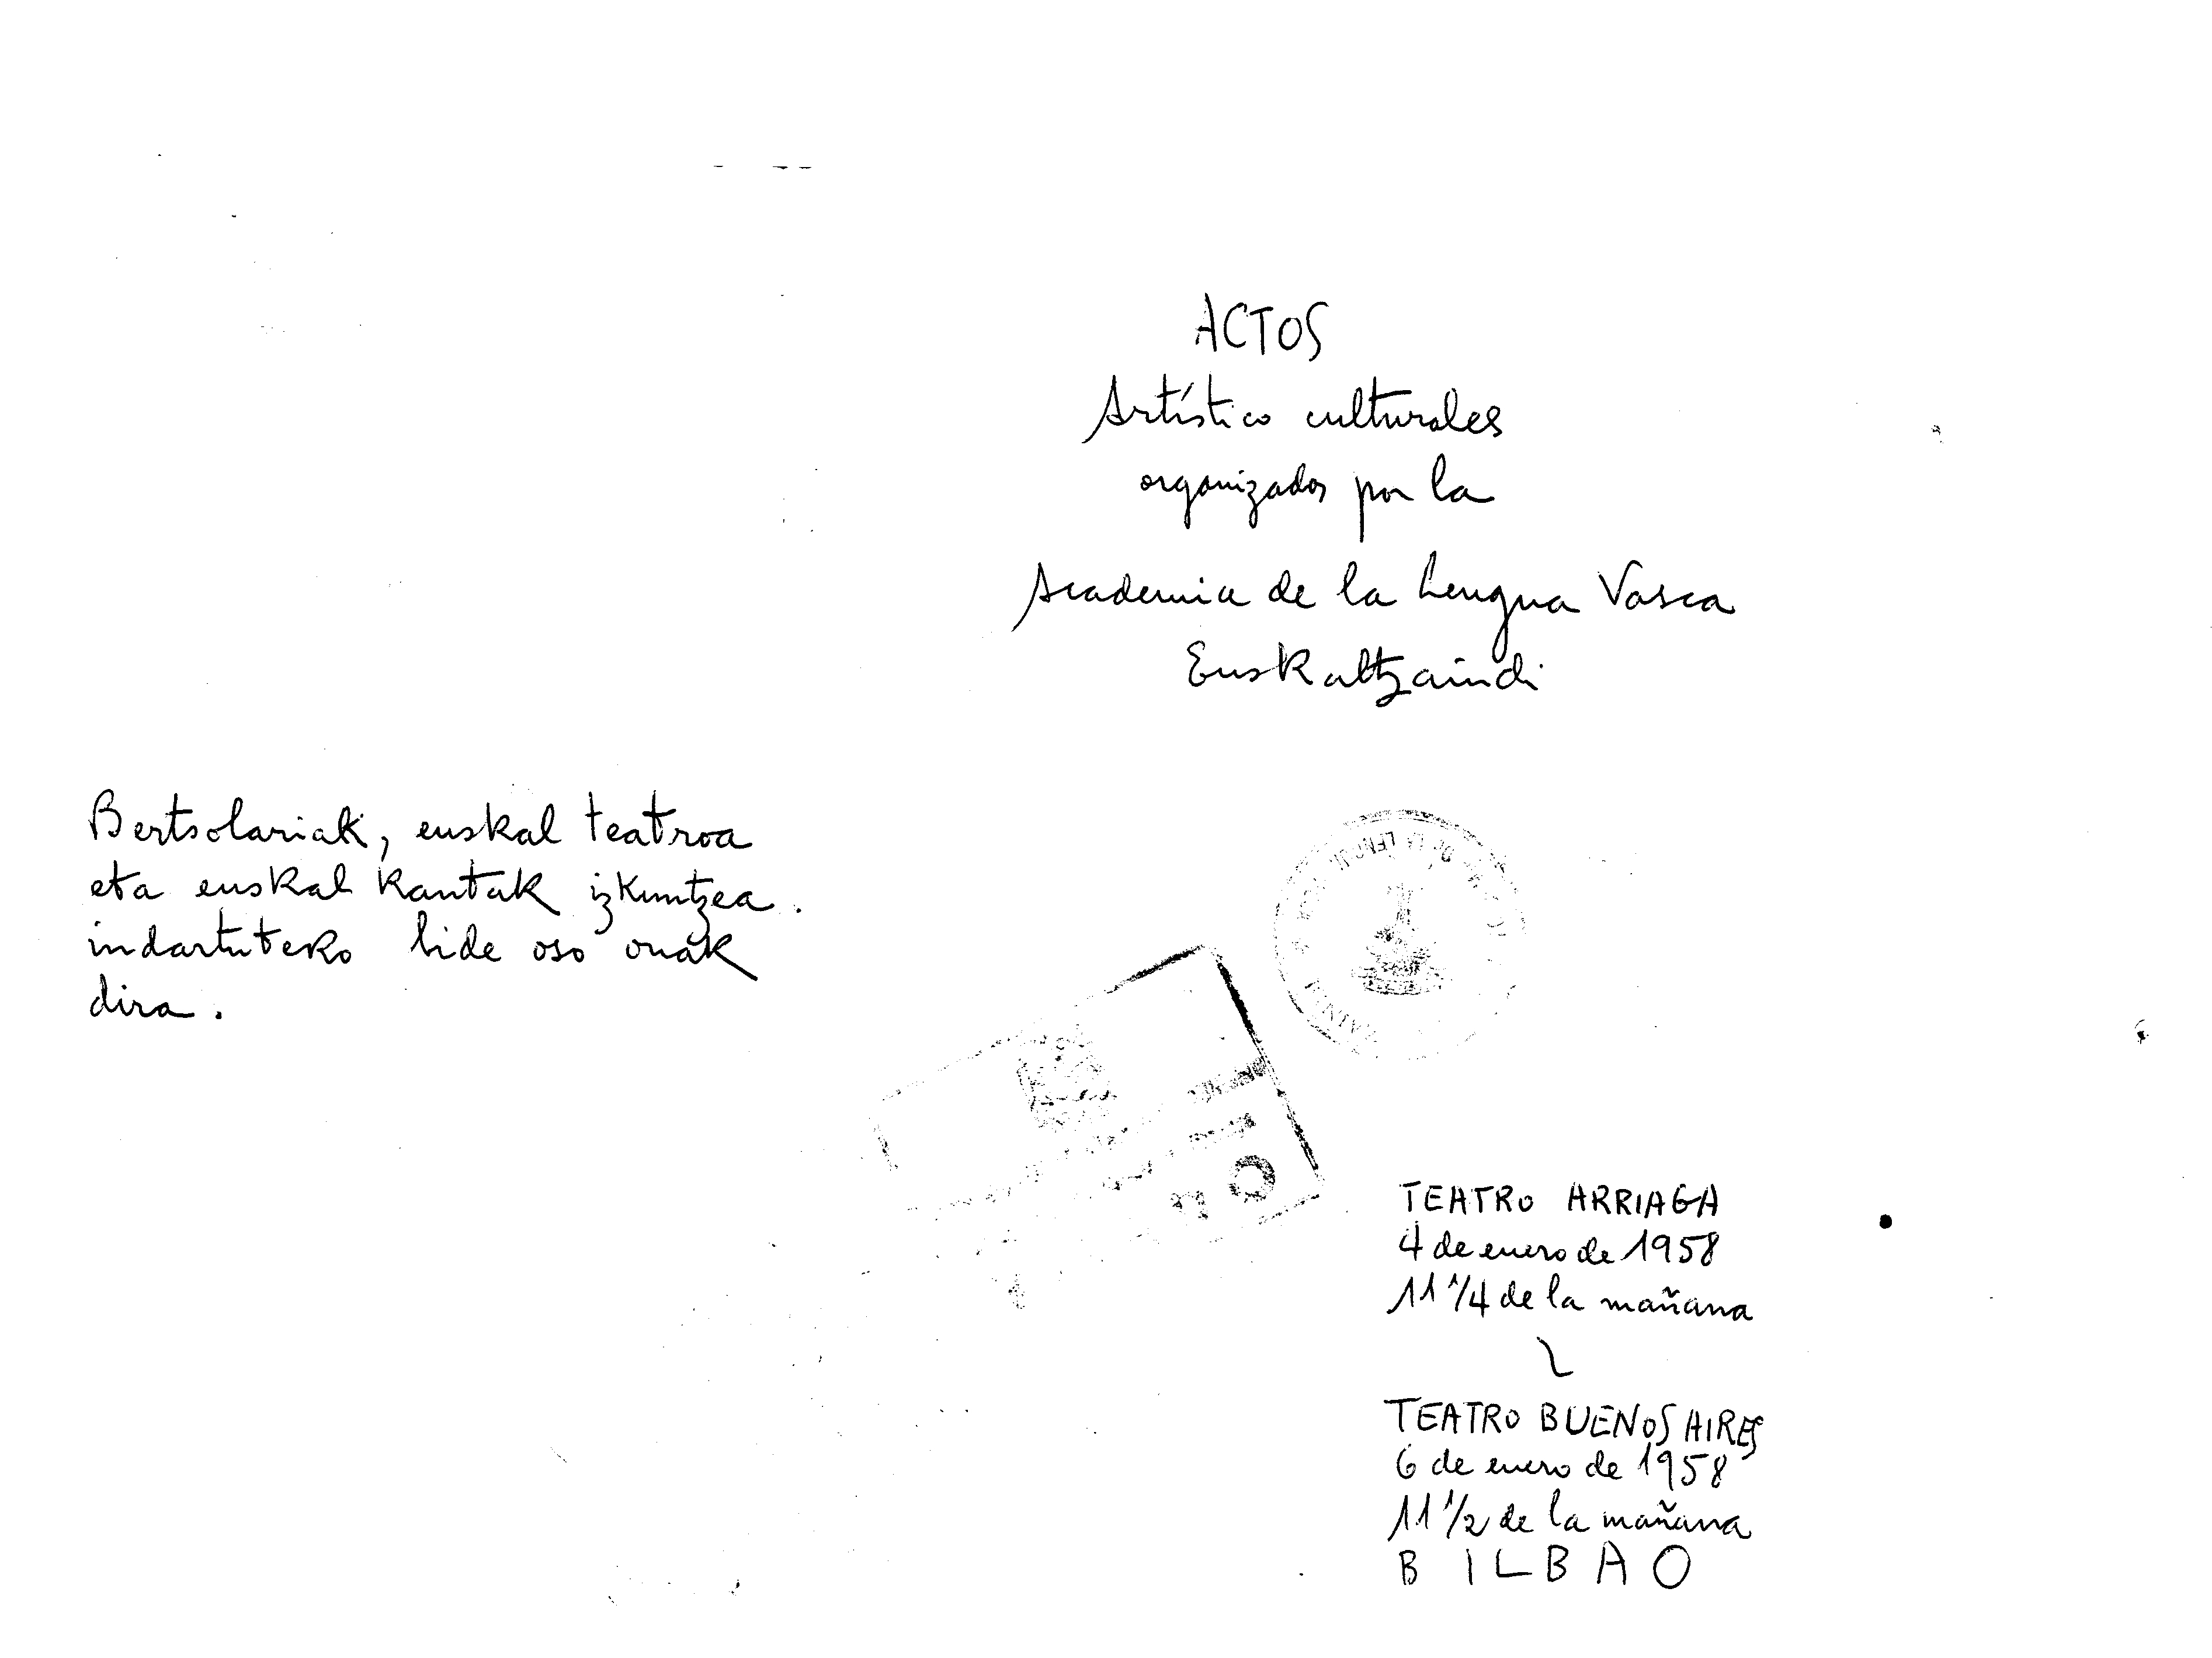 Bertsolariak, euskal teatroa
eta euskal kantak izkuntzea
indartuteko bide oso onak
dira.
ACTOS
Artístico culturales
organizados por la
Academia de la Lengua Vasca
Euskaltzaindi
DE LA LENGUA
TEATRO ARRIAGA
4 de enero de 1958
11 1/4 de la mañana
TEATRO BUENOS AIRES
6 de enero de 1958
11 1/2 de la mañana
BILBAO